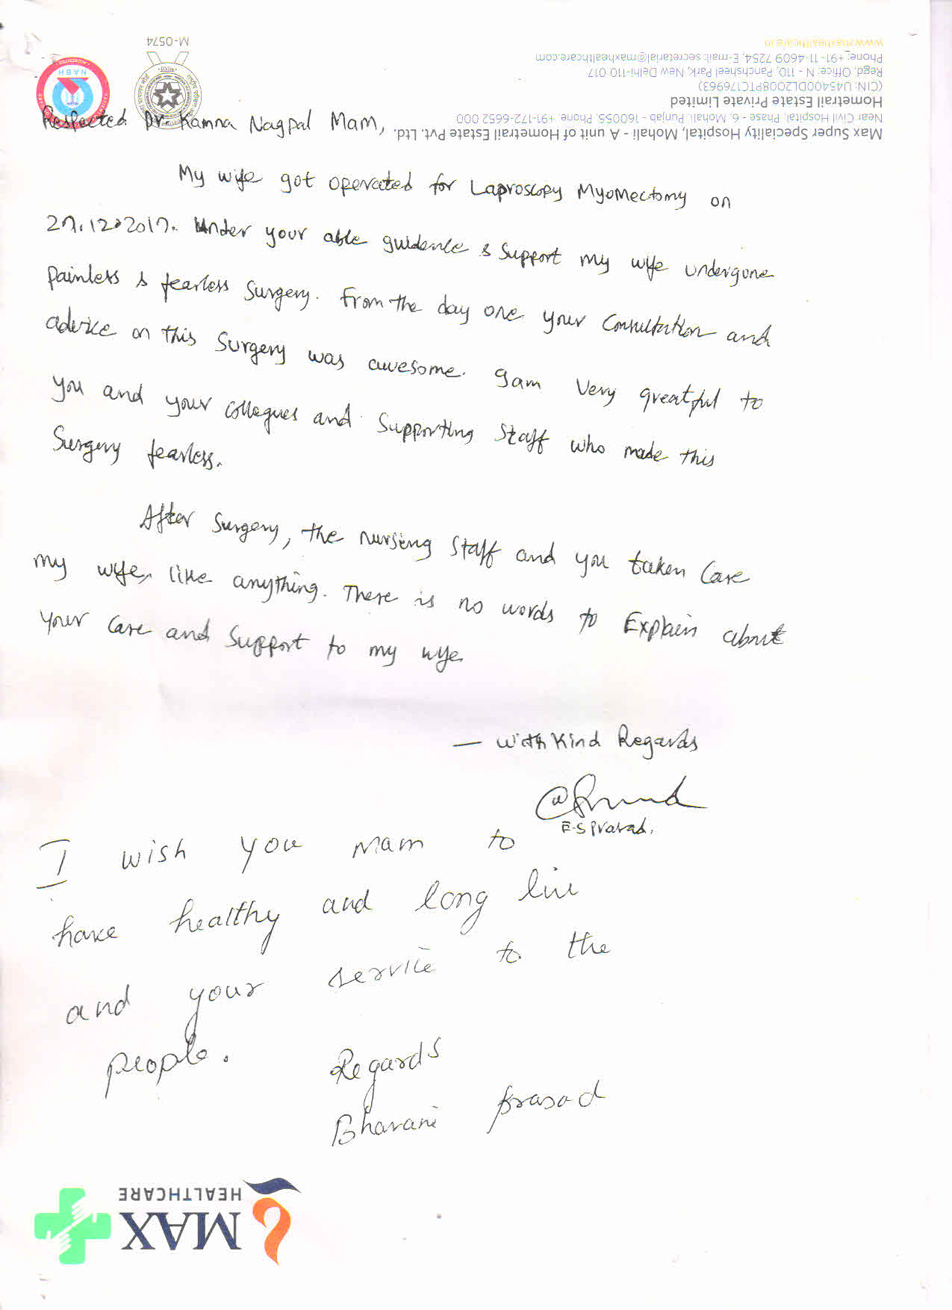 Respected Dr. Kamna Nagpal Mam,
My wife got operated for Laproscopy Myomectomy on
27.12.2017. Under your able guidence & Support my wife undergone
painless & fearless Surgery. From the day one your Consultation and
advice on this Surgery was awesome. I am Very greatful to
you and your collegues and Supporting Staff who made this
Surgery fearless.
After Surgery, the nursing Staff and you taken Care
my wife, like anything. There is no words to Explain about
your Care and Support to my wife
— with Kind Regards
E.S Prasad.
I wish you mam to
have healthy and long live
and your service to the
people.
Regards
Bhavani prasad
MAX
HEALTHCARE
Max Super Speciality Hospital, Mohali - A unit of Hometrail Estate Pvt. Ltd.
Near Civil Hospital, Phase - 6, Mohali, Punjab - 160055, Phone: +91-172-6652 000
Hometrail Estate Private Limited
(CIN: U45400DL2008PTC176963)
Regd. Office: N - 110, Panchsheel Park, New Delhi-110 017
Phone: +91-11-4609 7254, E-mail: secretarial@maxhealthcare.com
www.maxhealthcare.in
NABH
M-0574